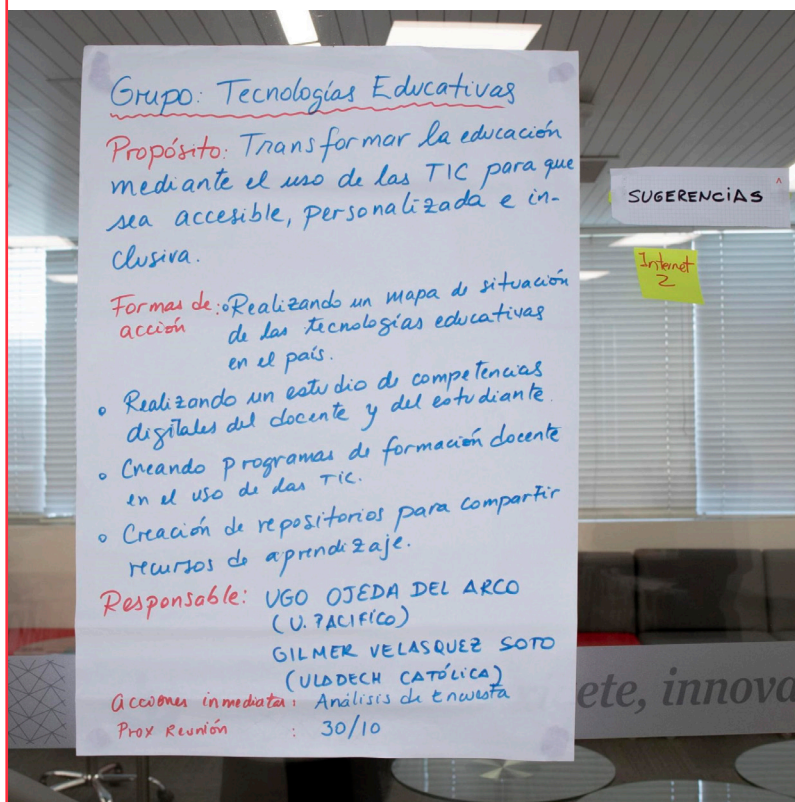 Grupo: Tecnologías Educativas
Propósito: Transformar la educación
mediante el uso de las TIC para que
sea accesible, personalizada e in-
clusiva.
Formas de acción: • Realizando un mapa de situación
de las tecnologías educativas
en el país.
• Realizando un estudio de competencias
digitales del docente y del estudiante.
• Creando programas de formación docente
en el uso de las TIC.
• Creación de repositorios para compartir
recursos de aprendizaje.
Responsable: UGO OJEDA DEL ARCO
(U. PACIFICO)
GILMER VELASQUEZ SOTO
(ULADECH CATÓLICA)
acciones inmediatas: Análisis de Encuesta
Prox Reunión : 30/10
SUGERENCIAS
Internet
2
ete, innova